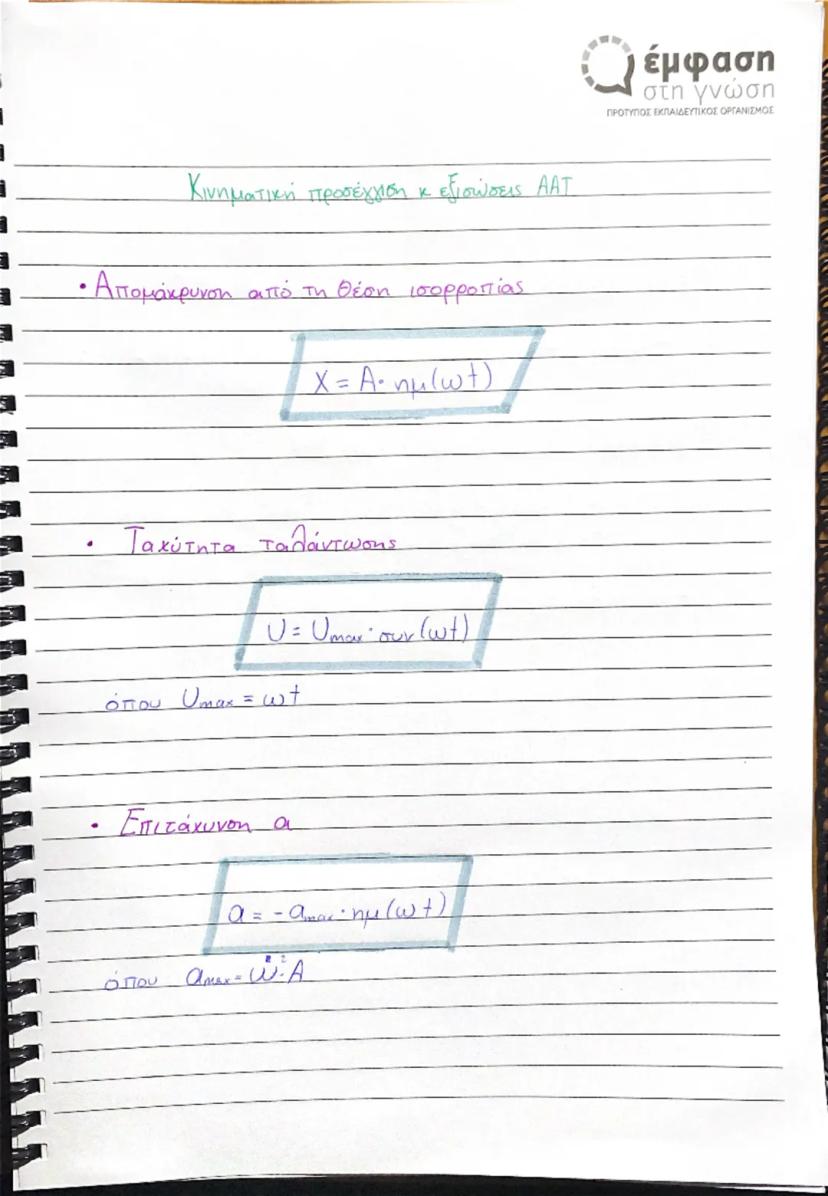 έμφαση
στη γνώση
ΠΡΟΤΥΠΟΣ ΕΚΠΑΙΔΕΥΤΙΚΟΣ ΟΡΓΑΝΙΣΜΟΣ
Κινηματική προσέγγιση κ εξισώσεις ΑΑΤ
• Απομάκρυνση από τη θέση ισορροπίας
X = A· ημ(ωt)
• Ταχύτητα ταλάντωσης
U = Umax · συν(ωt)
όπου Umax = ωt
• Επιτάχυνση α
a = - amax · ημ(ωt)
όπου amax = ω²·A